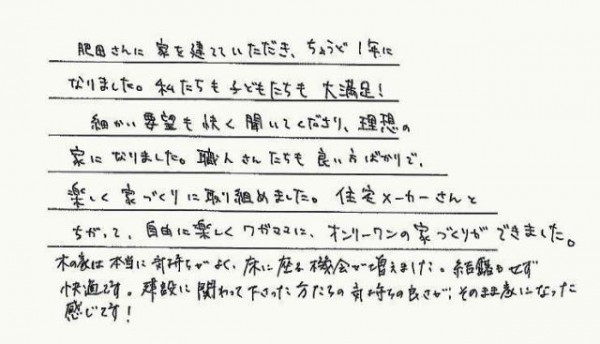 肥田さんに家を建てていただき、ちょうど1年に
なりました。私たちも子どもたちも大満足!
細かい要望も快く聞いてくださり、理想の
家になりました。職人さんたちも良い方ばかりで、
楽しく家づくりに取り組めました。住宅メーカーさんと
ちがって、自由に楽しくワガママに、オンリーワンの家づくりができました。
木の家は本当に気持ちがよく、床に座る機会が増えました。結露もせず
快適です。建設に関わって下さった方たちの気持ちの良さが、そのまま家になった
感じです!